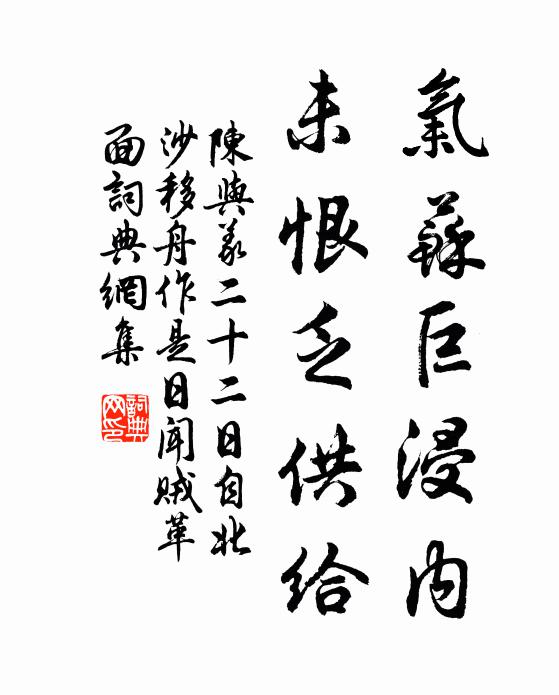 氣蘇巨浸內
未恨乏供給
陳與義二十二日自北
沙移舟作是日聞賊革
面詞典網集
詞典
网印